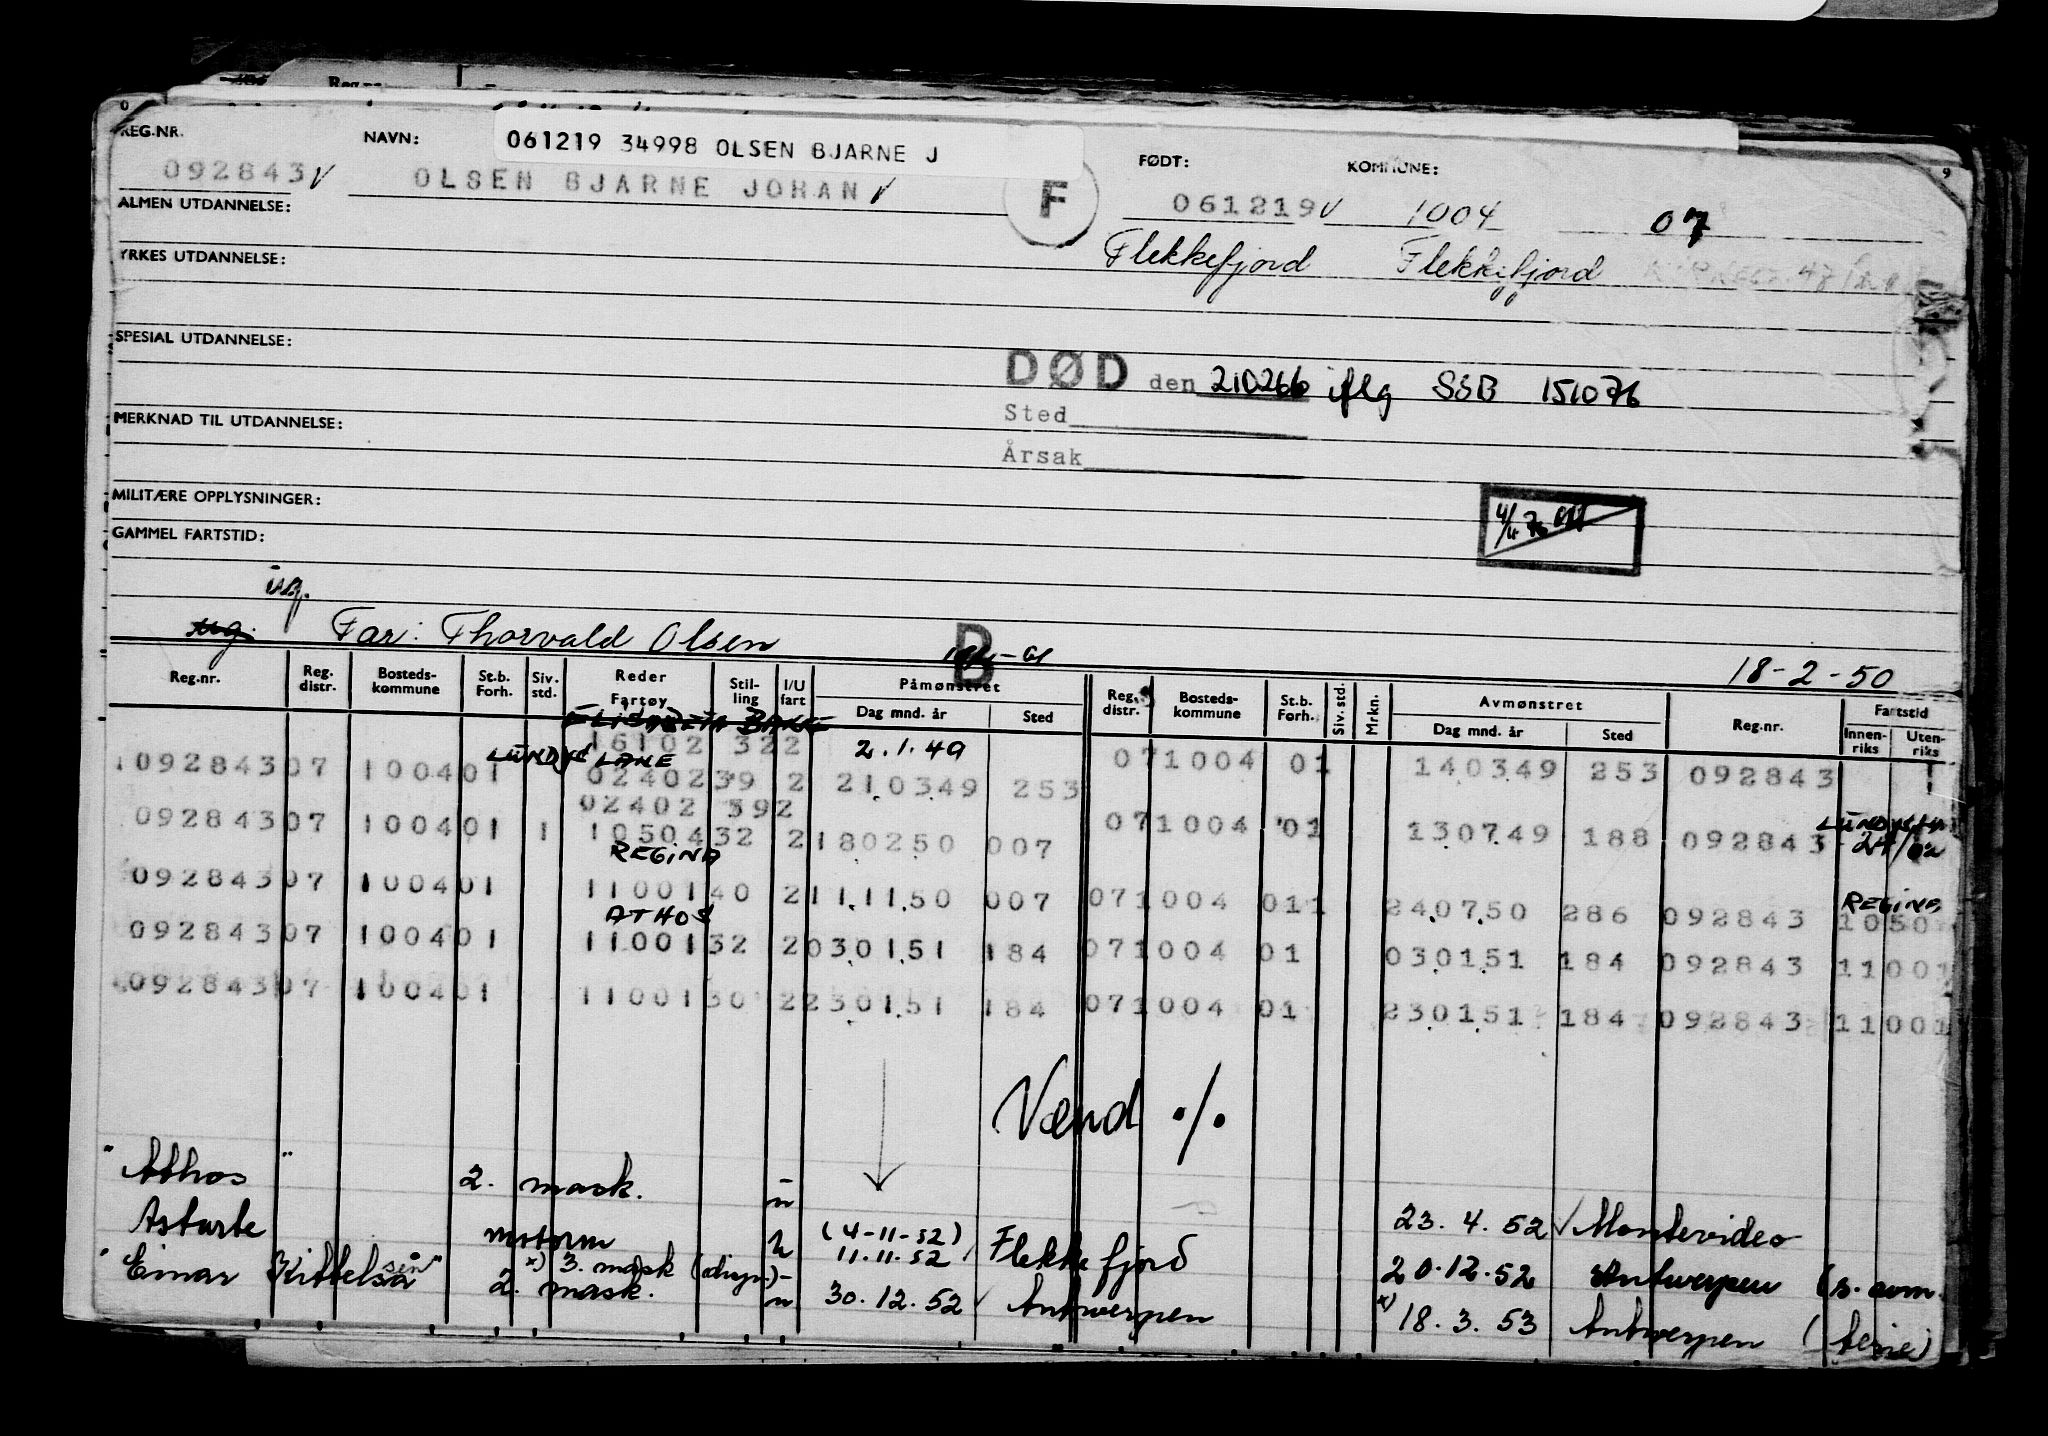 REG.NR. NAVN: 061219 34998 OLSEN BJARNE J FØDT: KOMMUNE:
092843 V OLSEN BJARNE JOHAN V F 061219 V 1004 07
ALMEN UTDANNELSE:
Flekkefjord Flekkefjord
YRKES UTDANNELSE:
SPESIAL UTDANNELSE:
DØD den 210266 iflg SSB 151076
MERKNAD TIL UTDANNELSE:
Sted
Årsak
MILITÆRE OPPLYSNINGER:
GAMMEL FARTSTID:
Far: Thorvald Olsen B
18-2-50
Reg.nr. Reg. distr. Bosteds-kommune St.b. Forh. Siv. std. Reder Fartøy Stil-ling I/U fart Påmønstret Dag mnd. år Sted Reg. distr. Bosteds-kommune St.b. Forh. Siv. std. Mrkn. Avmønstret Dag mnd. år Sted Reg.nr. Fartstid Innen-riks Uten-riks
ELISABETH BAKKE
16102 322 2.1.49
LUNDYS LANE
092843 07 1004 01 02402 39 2 210349 253 071004 01 140349 253 092843
02402 392
092843 07 1004 01 1 10504 32 2 180250 007 071004 01 130749 188 092843
REGINA
092843 07 1004 01 11001 40 2 111150 007 071004 011 240750 286 092843 REGINA 1050
ATHOS
092843 07 1004 01 11001 32 2 030151 184 071004 01 030151 184 092843 11001
092843 07 1004 01 11001 30 2 230151 184 071004 01 230151 184 092843 11001
Vend ./.
"Athos" 2. mask. u 23. 4. 52 V Montevideo
Astarte motorm u (4-11-52) 11.11-52 Flekkefjord 20.12.52 Antwerpen
"Einar Kittelsen" x) 3. mask 2. mask. u 30.12.52 Antwerpen x) 18. 3. 53 Antwerpen (ferie)